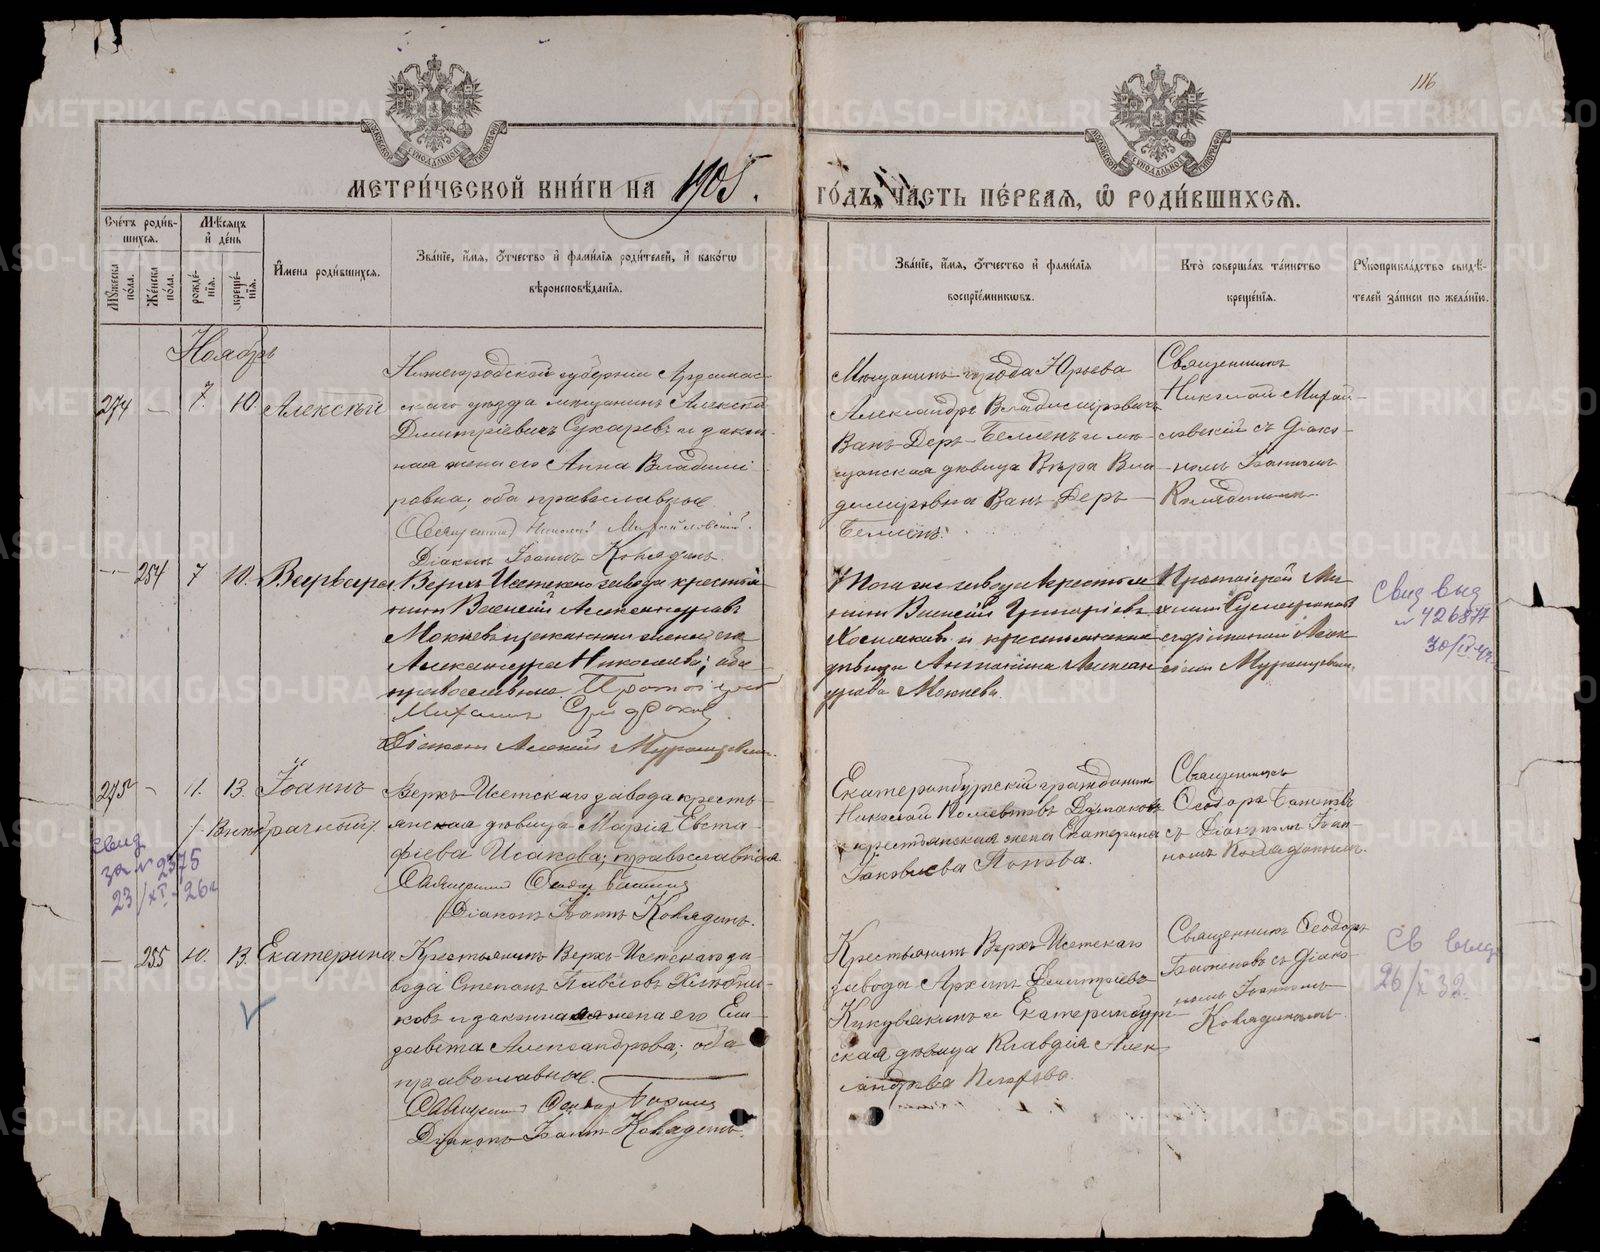 116
МЕТРИ́ЧЕСКОЙ КНИ́ГИ НА 1905. ГО́ДЪ, ЧА́СТЬ ПЕ́РВАЯ, Ѡ РОДИ́ВШИХСЯ.
Сче́тъ роди́в-
шихся.
Мѣ́сяцъ
и҆ де́нь
Мꙋ́жеска
по́ла.
Же́нска
по́ла.
рожде́-
нїя.
креще́-
нїя.
И҆мена роди́вшихся.
Зва́нїе, и҆́мя, ѻ҆́тчество и҆ фами́лїя роди́телей, и҆ како́гѡ
вѣроисповѣ́данїя.
Зва́нїе, и҆́мя, ѻ҆́тчество и҆ фами́лїя
воспрїе́мникѡвъ.
Кто̀ соверша́лъ та́инство
креще́нїя.
Рꙋкоприкла́дство свидѣ́-
телей за́писи по жела́нїю.
Ноябрь
274 — 7. 10 Алексѣй
Нижегородской губерніи Арзамас-
скаго уѣзда мѣщанинъ Алексѣй
Дмитріевичъ Сухаревъ и закон-
ная жена его Анна Владимі
ровна; оба православные.
Священникъ Николай
Діаконъ Іоаннъ Колядинъ.
Мѣщанинъ города Юрьева
Александръ Владиміровичъ
Ванъ-Деръ-Белленъ и мѣ-
щанская дѣвица Вѣра Вла-
диміровна Ванъ-Деръ-
Белленъ.
Священникъ
Николай
ловскій съ діако-
номъ Іоанномъ
Колядинымъ.
— 254 7 10. Варвара
Верхъ-Исетскаго завода крестья
нинъ Василій Александровъ
Мокѣевъ и законная жена его
Александра Николаева; оба
православные. Протоіерей
Михаилъ
Діаконъ Алексій
Того же завода крестья
нинъ Василій Григоріевъ
и крестьянская
дѣвица Антонина Алексан
дрова Мокѣева.
Протоіерей Ми-
хаилъ
съ діакономъ Алек
сіемъ
Свид выд
№ 426877
30/IX
275 — 11. 13. Іоаннъ
/Внѣбрачный/
Верхъ-Исетскаго завода кресть-
янская дѣвица Марія Евста-
фіева Исакова; православная
Священникъ Ѳеодоръ
Діаконъ Іоаннъ Колядинъ.
Екатеринбургскій гражданинъ
Николай
крестьянская жена Екатерина
Іаковлева Попова.
Священникъ
Ѳеодоръ Баженовъ
съ Діакономъ Іоан-
номъ Колядинымъ.
свид
за № 2375
23/XI - 26г
— 255 10. 13. Екатерина
Крестьянинъ Верхъ-Исетскаго за-
вода Степанъ Павловъ
ковъ и законная жена его Ели-
завета Александрова; оба
православные.
Священникъ Ѳеодоръ
Діаконъ Іоаннъ Колядинъ.
Крестьянинъ Верхъ-Исетскаго
завода Архипъ Димитріевъ
Кукувякинъ и Екатеринбург-
ская дѣвица Клавдія Алек
сандрова
Священникъ Ѳеодоръ
Баженовъ съ діако-
номъ Іоанномъ
Колядинымъ.
св выд
26/X 32.
METRIKI.GASO-URAL.RU